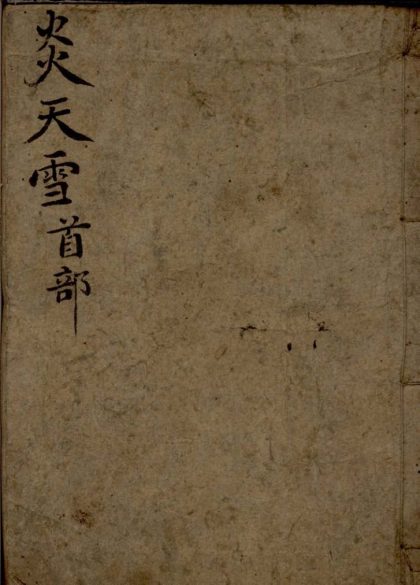 炎天雪首部